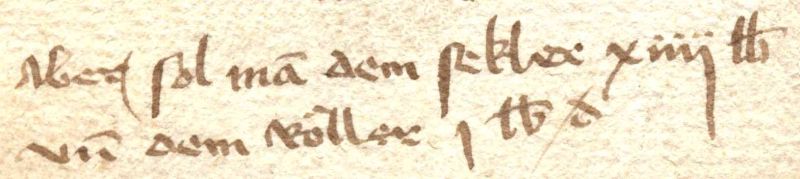 Aber sol mā dem sekler xiiij lb
vn̄ dem Röller j lb d